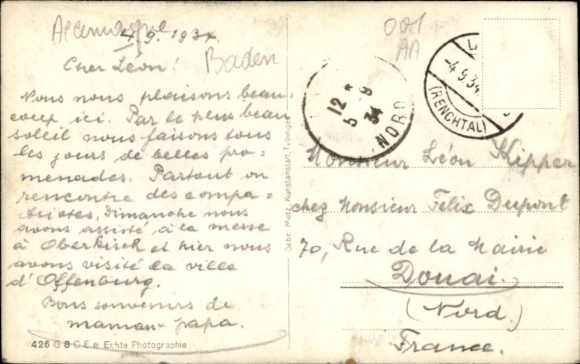 Allemagne
4/9. 1934.
Baden
Cher Léon!
Nous nous plaisons beau-
coup ici. Par le plus beau
soleil nous faisons tous
les jours de belles pro-
menades. Partout on
rencontre des compa-
triotes, dimanche nous
avons assisté à la messe
à Oberkirch et hier nous
avons visité la ville
d'Offenburg.
Bons souvenirs de
maman-papa.
426 G 8 C E e Echte Photographie
Gebr. Metz, Kunstanstalt, Tübingen
001
AA
12 *
5 9
34
NORD
-4.9.34
(RENCHTAL)
Monsieur Léon Kipper
chez Monsieur Félix Dupont
70, Rue de la Mairie
Douai
(Nord.)
France.